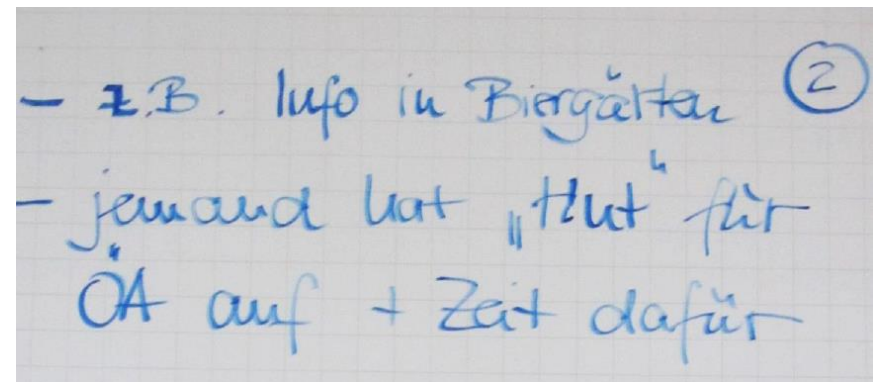 - z.B. Info in Biergärten ②
- jemand hat „Hut“ für
ÖA auf + Zeit dafür